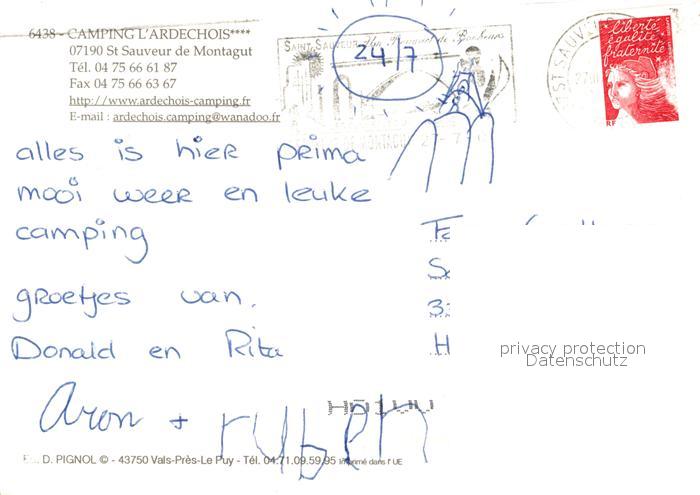 6438 - CAMPING L'ARDECHOIS****
07190 St Sauveur de Montagut
Tél. 04 75 66 61 87
Fax 04 75 66 63 67
http://www.ardechois-camping.fr
E-mail : ardechois.camping@wanadoo.fr
SAINT SAUVEUR
24/7
ST SAUVEU
liberté
égalité
fraternité
RF
alles is hier prima
mooi weer en leuke
camping
groetjes van.
Donald en Rita
Aron + ruben
S
3
H
privacy protection
Datenschutz
D. PIGNOL © - 43750 Vals-Près-Le Puy - Tél. 04.71.09.59.95 Imprimé dans l' UE